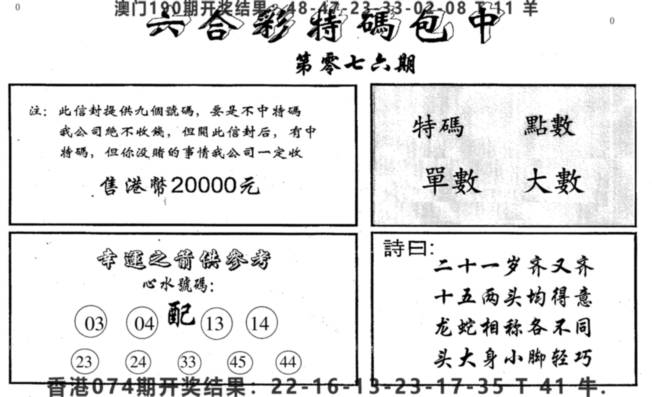 澳门190期开奖结果:48-47-23-33-02-08 T 11 羊
0
0
六合彩特碼包中
第零七六期
注：此信封提供九個號碼，要是不中特碼
我公司絶不收錢，但開此信封后，有中
特碼，但你没賭的事情我公司一定收
售港幣20000元
特碼 點數
單數 大數
幸運之箭供參考
心水號碼:
03 04 配 13 14
23 24 33 45 44
詩曰:
二十一岁齐又齐
十五两头均得意
龙蛇相称各不同
头大身小脚轻巧
香港074期开奖结果：22-16-13-23-17-35 T 41 牛.